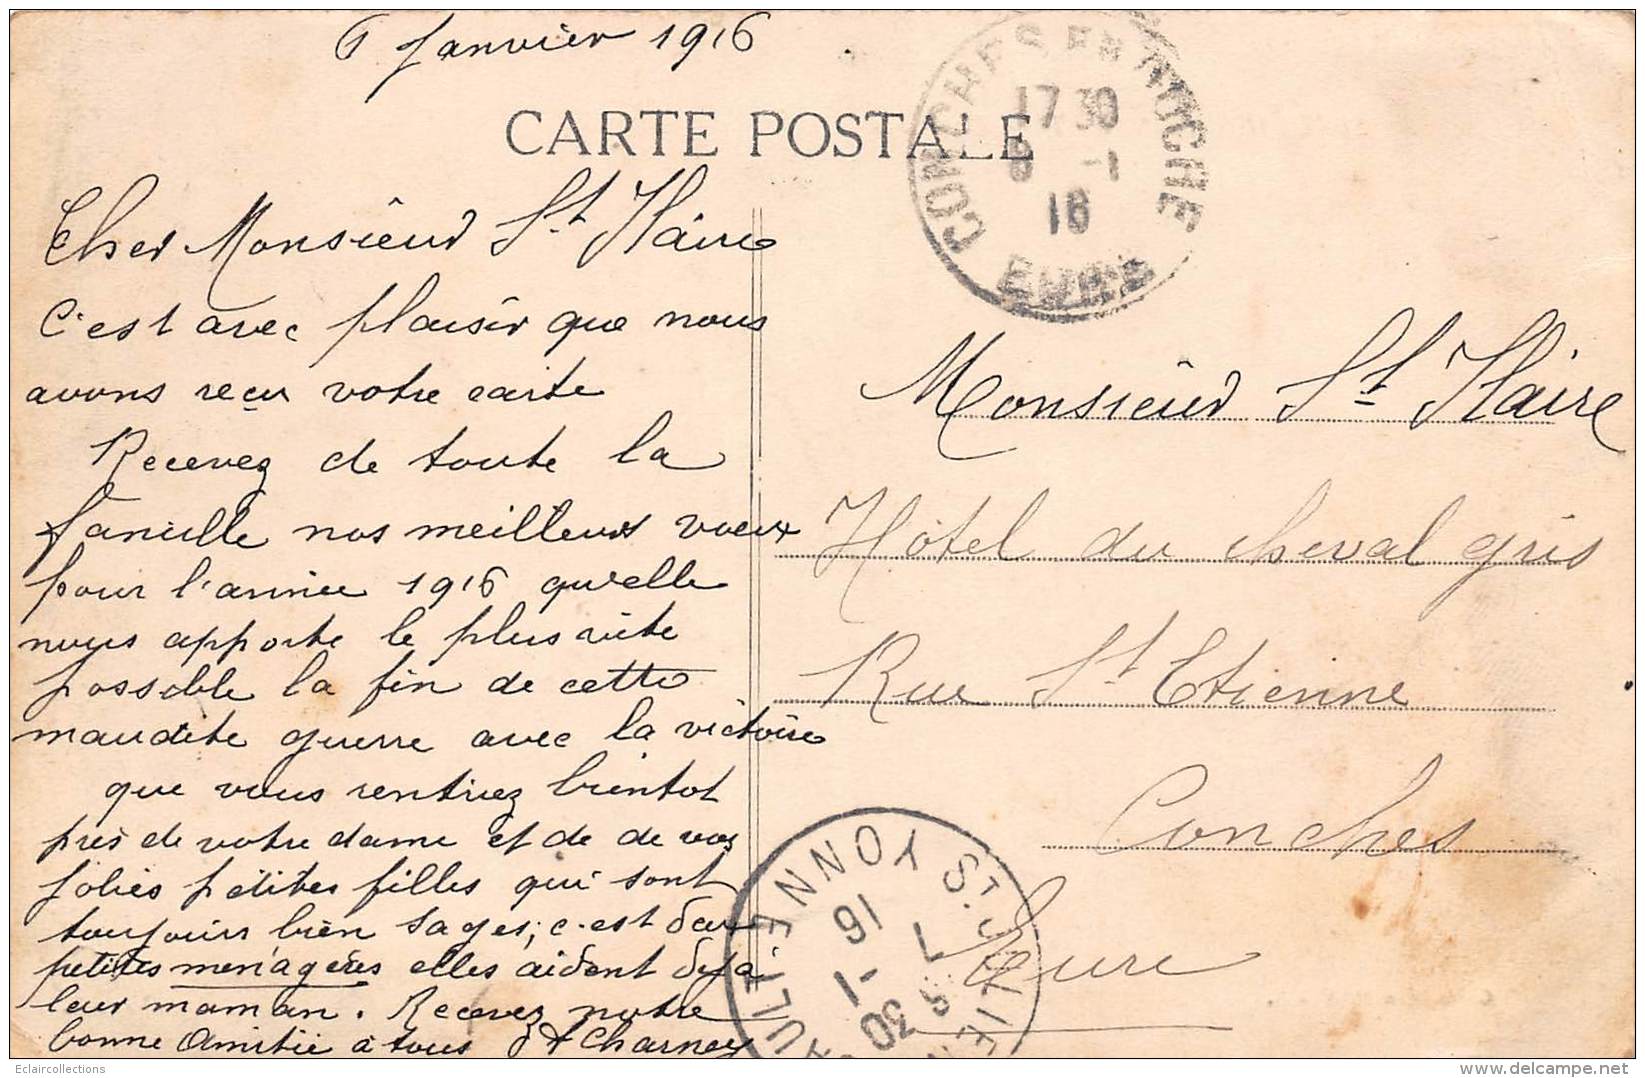 6 Janvier 1916
CARTE POSTALE
CONCHES EN OUCHE
17 30
6 -1
16
EURE
Cher Monsieur St Haire
C'est avec plaisir que nous
avons reçu votre carte
Recevez de toute la
famille nos meilleurs voeux
pour l'année 1916 qu'elle
nous apporte le plus vite
possible la fin de cette
maudite guerre avec la victoire
que vous rentriez bientot
près de votre dame et de de vos
jolies petites filles qui sont
toujours bien sages, c'est deux
petites menagères elles aident deja
leur maman. Recevez notre
bonne Amitié à tous Charney
Monsieur St Haire
Hôtel du cheval gris
Rue St Etienne
Conches
Eure
ANNOY ST.
16
7 -1
30
Eclaircollections
delcampe.net